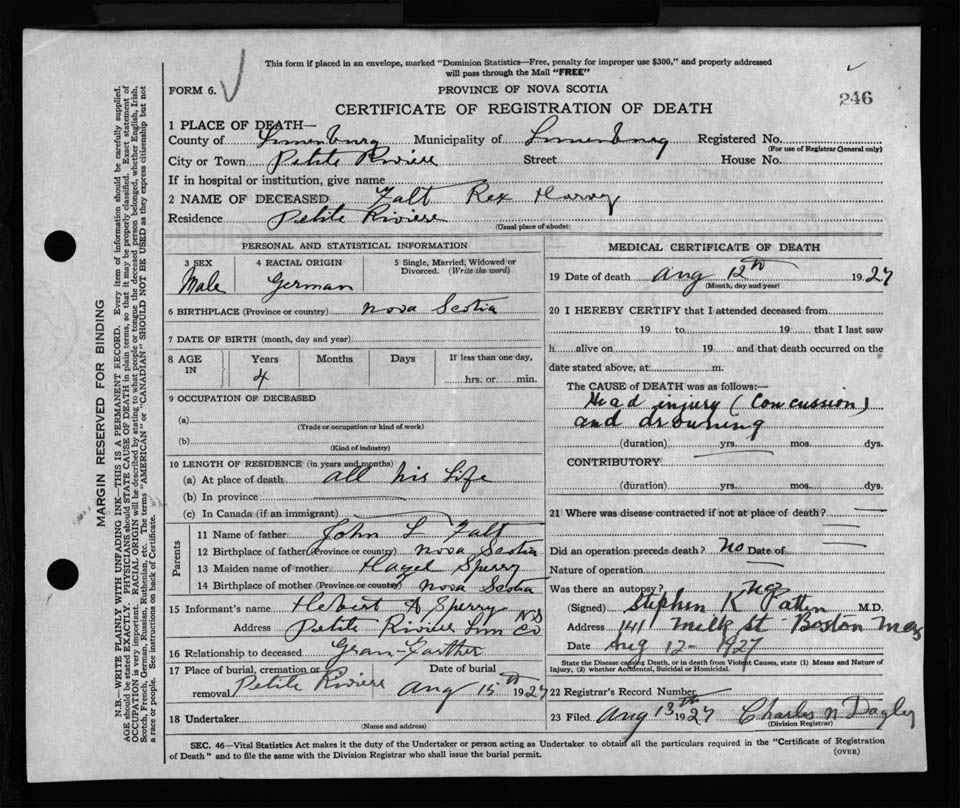 This form if placed in an envelope, marked "Dominion Statistics—Free, penalty for improper use $300," and properly addressed
will pass through the Mail "FREE"
FORM 6.
PROVINCE OF NOVA SCOTIA
246
CERTIFICATE OF REGISTRATION OF DEATH
1 PLACE OF DEATH—
County of Lunenburg Municipality of Lunenburg Registered No.
(For use of Registrar General only)
City or Town Petite Riviere Street House No.
If in hospital or institution, give name
2 NAME OF DECEASED Falt Rex Harvey
Residence Petite Riviere
(Usual place of abode)
PERSONAL AND STATISTICAL INFORMATION
3 SEX 4 RACIAL ORIGIN 5 Single, Married, Widowed or
Divorced. (Write the word)
Male German
6 BIRTHPLACE (Province or country) Nova Scotia
7 DATE OF BIRTH (month, day and year)
8 AGE Years Months Days If less than one day,
IN 4 hrs. or min.
9 OCCUPATION OF DECEASED
(a)
(Trade or occupation or kind of work)
(b)
(Kind of industry)
10 LENGTH OF RESIDENCE (in years and months)
(a) At place of death all his Life
(b) In province
(c) In Canada (if an immigrant)
Parents
11 Name of father John L Falt
12 Birthplace of father (Province or country) Nova Scotia
13 Maiden name of mother Hazel Sperry
14 Birthplace of mother (Province or country) Nova Scotia
15 Informant's name Hebert A Sperry
Address Petite Riviere Lun Co NS
16 Relationship to deceased Gran-Farther
17 Place of burial, cremation or Date of burial
removal Petite Riviere Aug 15th 1927
18 Undertaker
(Name and address)
MEDICAL CERTIFICATE OF DEATH
19 Date of death Aug 12th 1927
(Month, day and year)
20 I HEREBY CERTIFY that I attended deceased from
19 to 19 that I last saw
h alive on 19 and that death occurred on the
date stated above, at m.
The CAUSE of DEATH was as follows:—
Head injury (Concussion)
and drowning
(duration) yrs. mos. dys.
CONTRIBUTORY
(duration) yrs. mos. dys.
21 Where was disease contracted if not at place of death?
Did an operation precede death? No Date of
Nature of operation
Was there an autopsy? No
(Signed) Stephen K Patten M.D.
Address 141 Milk St Boston Mass
Date Aug 12-1927
State the Disease causing Death, or in death from Violent Causes, state (1) Means and Nature of
Injury, (2) whether Accidental, Suicidal or Homicidal.
22 Registrar's Record Number
23 Filed Aug 13th 1927 Charles N Dagley
(Division Registrar)
SEC. 46—Vital Statistics Act makes it the duty of the Undertaker or person acting as Undertaker to obtain all the particulars required in the "Certificate of Registration
of Death" and to file the same with the Division Registrar who shall issue the burial permit.
(OVER)
MARGIN RESERVED FOR BINDING
N.B.—WRITE PLAINLY WITH UNFADING INK—THIS IS A PERMANENT RECORD. Every item of information should be carefully supplied.
AGE should be stated EXACTLY. PHYSICIANS should STATE CAUSE OF DEATH in plain terms, so that it may be properly classified. Exact statement of
OCCUPATION is very important. RACIAL ORIGIN will be described by stating to what people or tongue the deceased person belonged, whether English, Irish,
Scotch, French, German, Russian, Ruthenian, etc. The terms "AMERICAN" or "CANADIAN" SHOULD NOT BE USED as they express citizenship but not
a race or people. See instructions on back of Certificate.